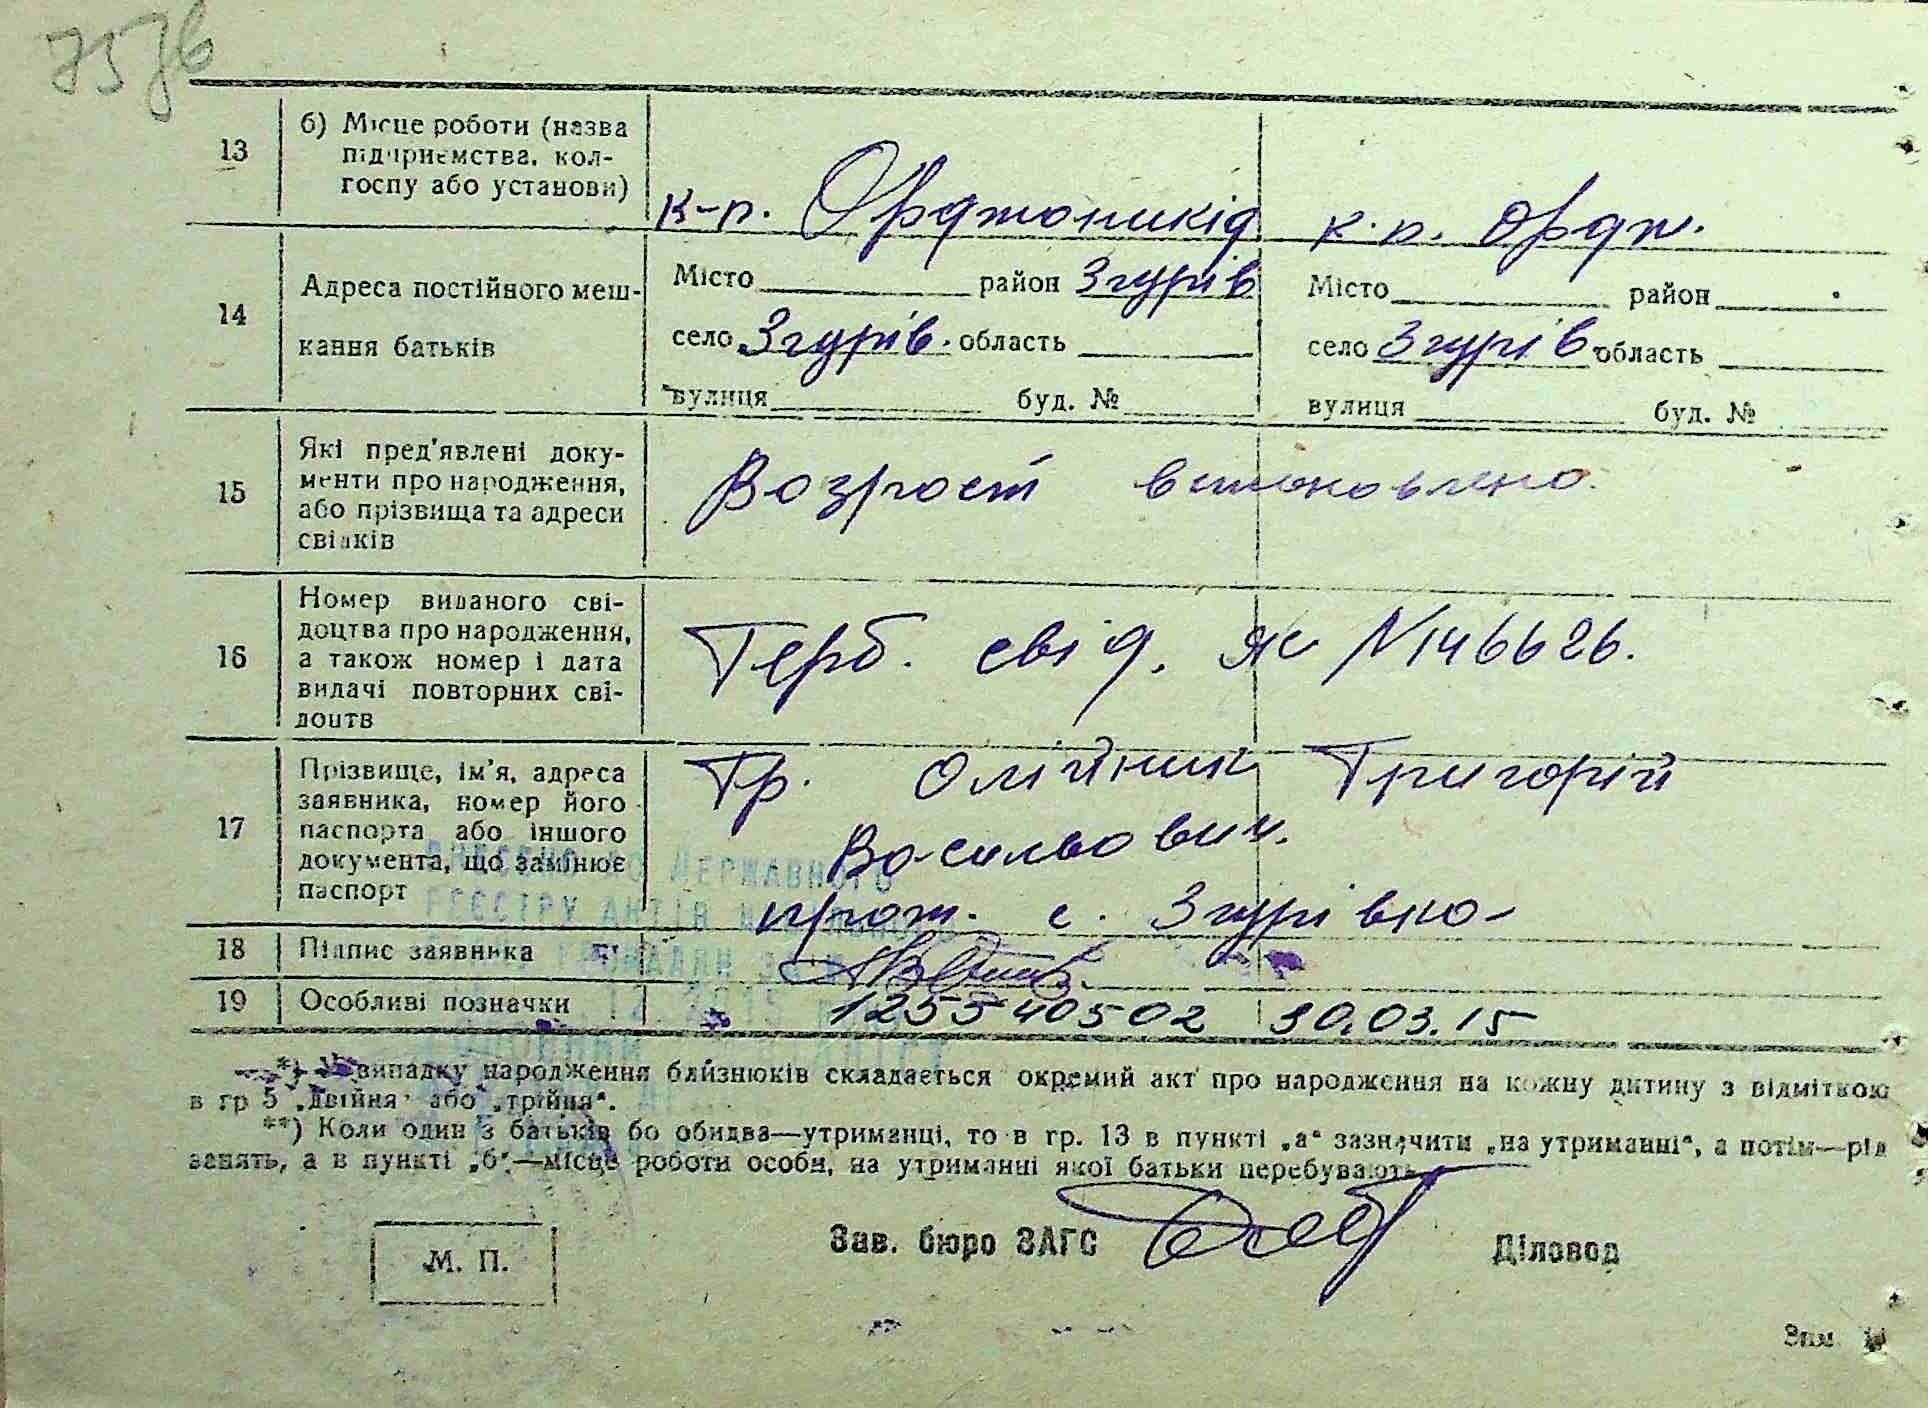 13
б) Місце роботи (назва
підприємства, кол-
госпу або установи)
к-п. Орджонікід
к.п. Ордж.
14
Адреса постійного меш-
кання батьків
Місто район Згурів
село Згурів. область
вулиця буд. №
Місто район
село Згурів область
вулиця буд. №
15
Які пред'явлені доку-
менти про народження,
або прізвища та адреси
свідків
Возраст встановлено.
16
Номер виданого сві-
доцтва про народження,
а також номер і дата
видачі повторних сві-
доцтв
Герб. свід. ЯС N146626.
17
Прізвище, ім'я, адреса
заявника, номер його
паспорта або іншого
документа, що замінює
паспорт
Гр. Олійник Григорій
Васильович.
прож. с. Згурівка
18
Підпис заявника
19
Особливі позначки
1255540502 30.03.15
ДЕРЖАВНОГО
РЕЄСТРУ АКТІВ
*) У випадку народження близнюків складається окремий акт про народження на кожну дитину з відміткою
в гр 5 „Двійня“ або „трійня“.
**) Коли один з батьків бо обидва—утриманці, то в гр. 13 в пункті „а“ зазначити „на утриманні“, а потім—рід
занять, а в пункті „б“—місце роботи особи, на утриманні якої батьки перебувають.
М. П.
Зав. бюро ЗАГС
Діловод